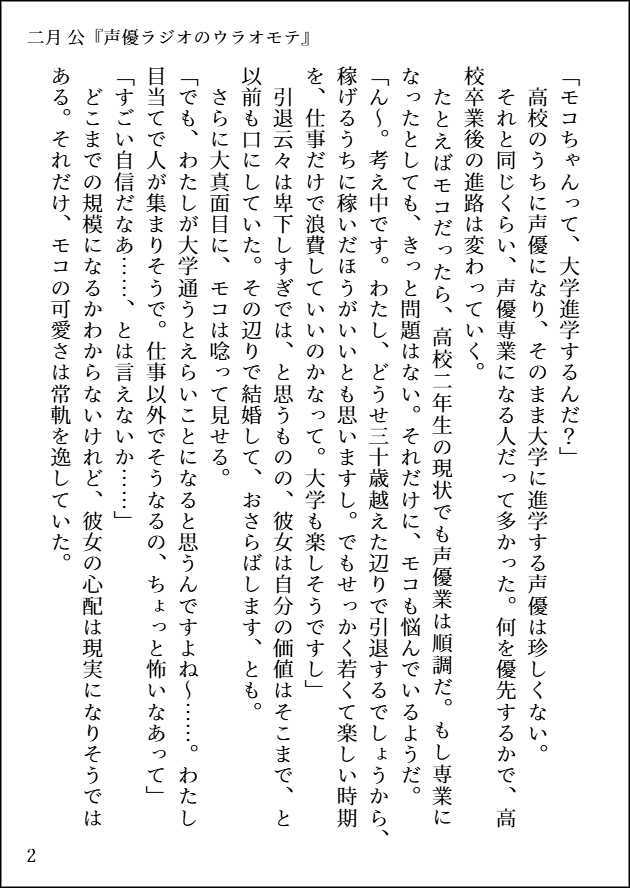 二月 公『声優ラジオのウラオモテ』
「モコちゃんって、大学進学するんだ？」
　高校のうちに声優になり、そのまま大学に進学する声優は珍しくない。
　それと同じくらい、声優専業になる人だって多かった。何を優先するかで、高
校卒業後の進路は変わっていく。
　たとえばモコだったら、高校二年生の現状でも声優業は順調だ。もし専業に
なったとしても、きっと問題はない。それだけに、モコも悩んでいるようだ。
「ん〜。考え中です。わたし、どうせ三十歳越えた辺りで引退するでしょうから、
稼げるうちに稼いだほうがいいとも思いますし。でもせっかく若くて楽しい時期
を、仕事だけで浪費していいのかなって。大学も楽しそうですし」
　引退云々は卑下しすぎでは、と思うものの、彼女は自分の価値はそこまで、と
以前も口にしていた。その辺りで結婚して、おさらばします、とも。
　さらに大真面目に、モコは唸って見せる。
「でも、わたしが大学通うとえらいことになると思うんですよね〜……。わたし
目当てで人が集まりそうで。仕事以外でそうなるの、ちょっと怖いなあって」
「すごい自信だなあ……、とは言えないか……」
　どこまでの規模になるかわからないけれど、彼女の心配は現実になりそうでは
ある。それだけ、モコの可愛さは常軌を逸していた。
2